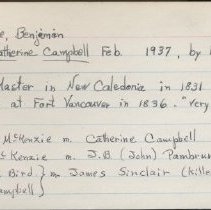 e, Benjamin
atherine Campbell Feb. 1937, by
Master in New Caledonia in 1831
at Fort Vancouver in 1836. "very
McKenzie m. Catherine Campbell
cKenzie m. J.B. (John) Pambrun
Bird) m. James Sinclair (kille
ampbell)